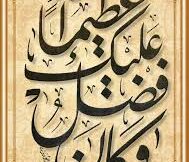 وكان
فضل
عليك
عظيماً